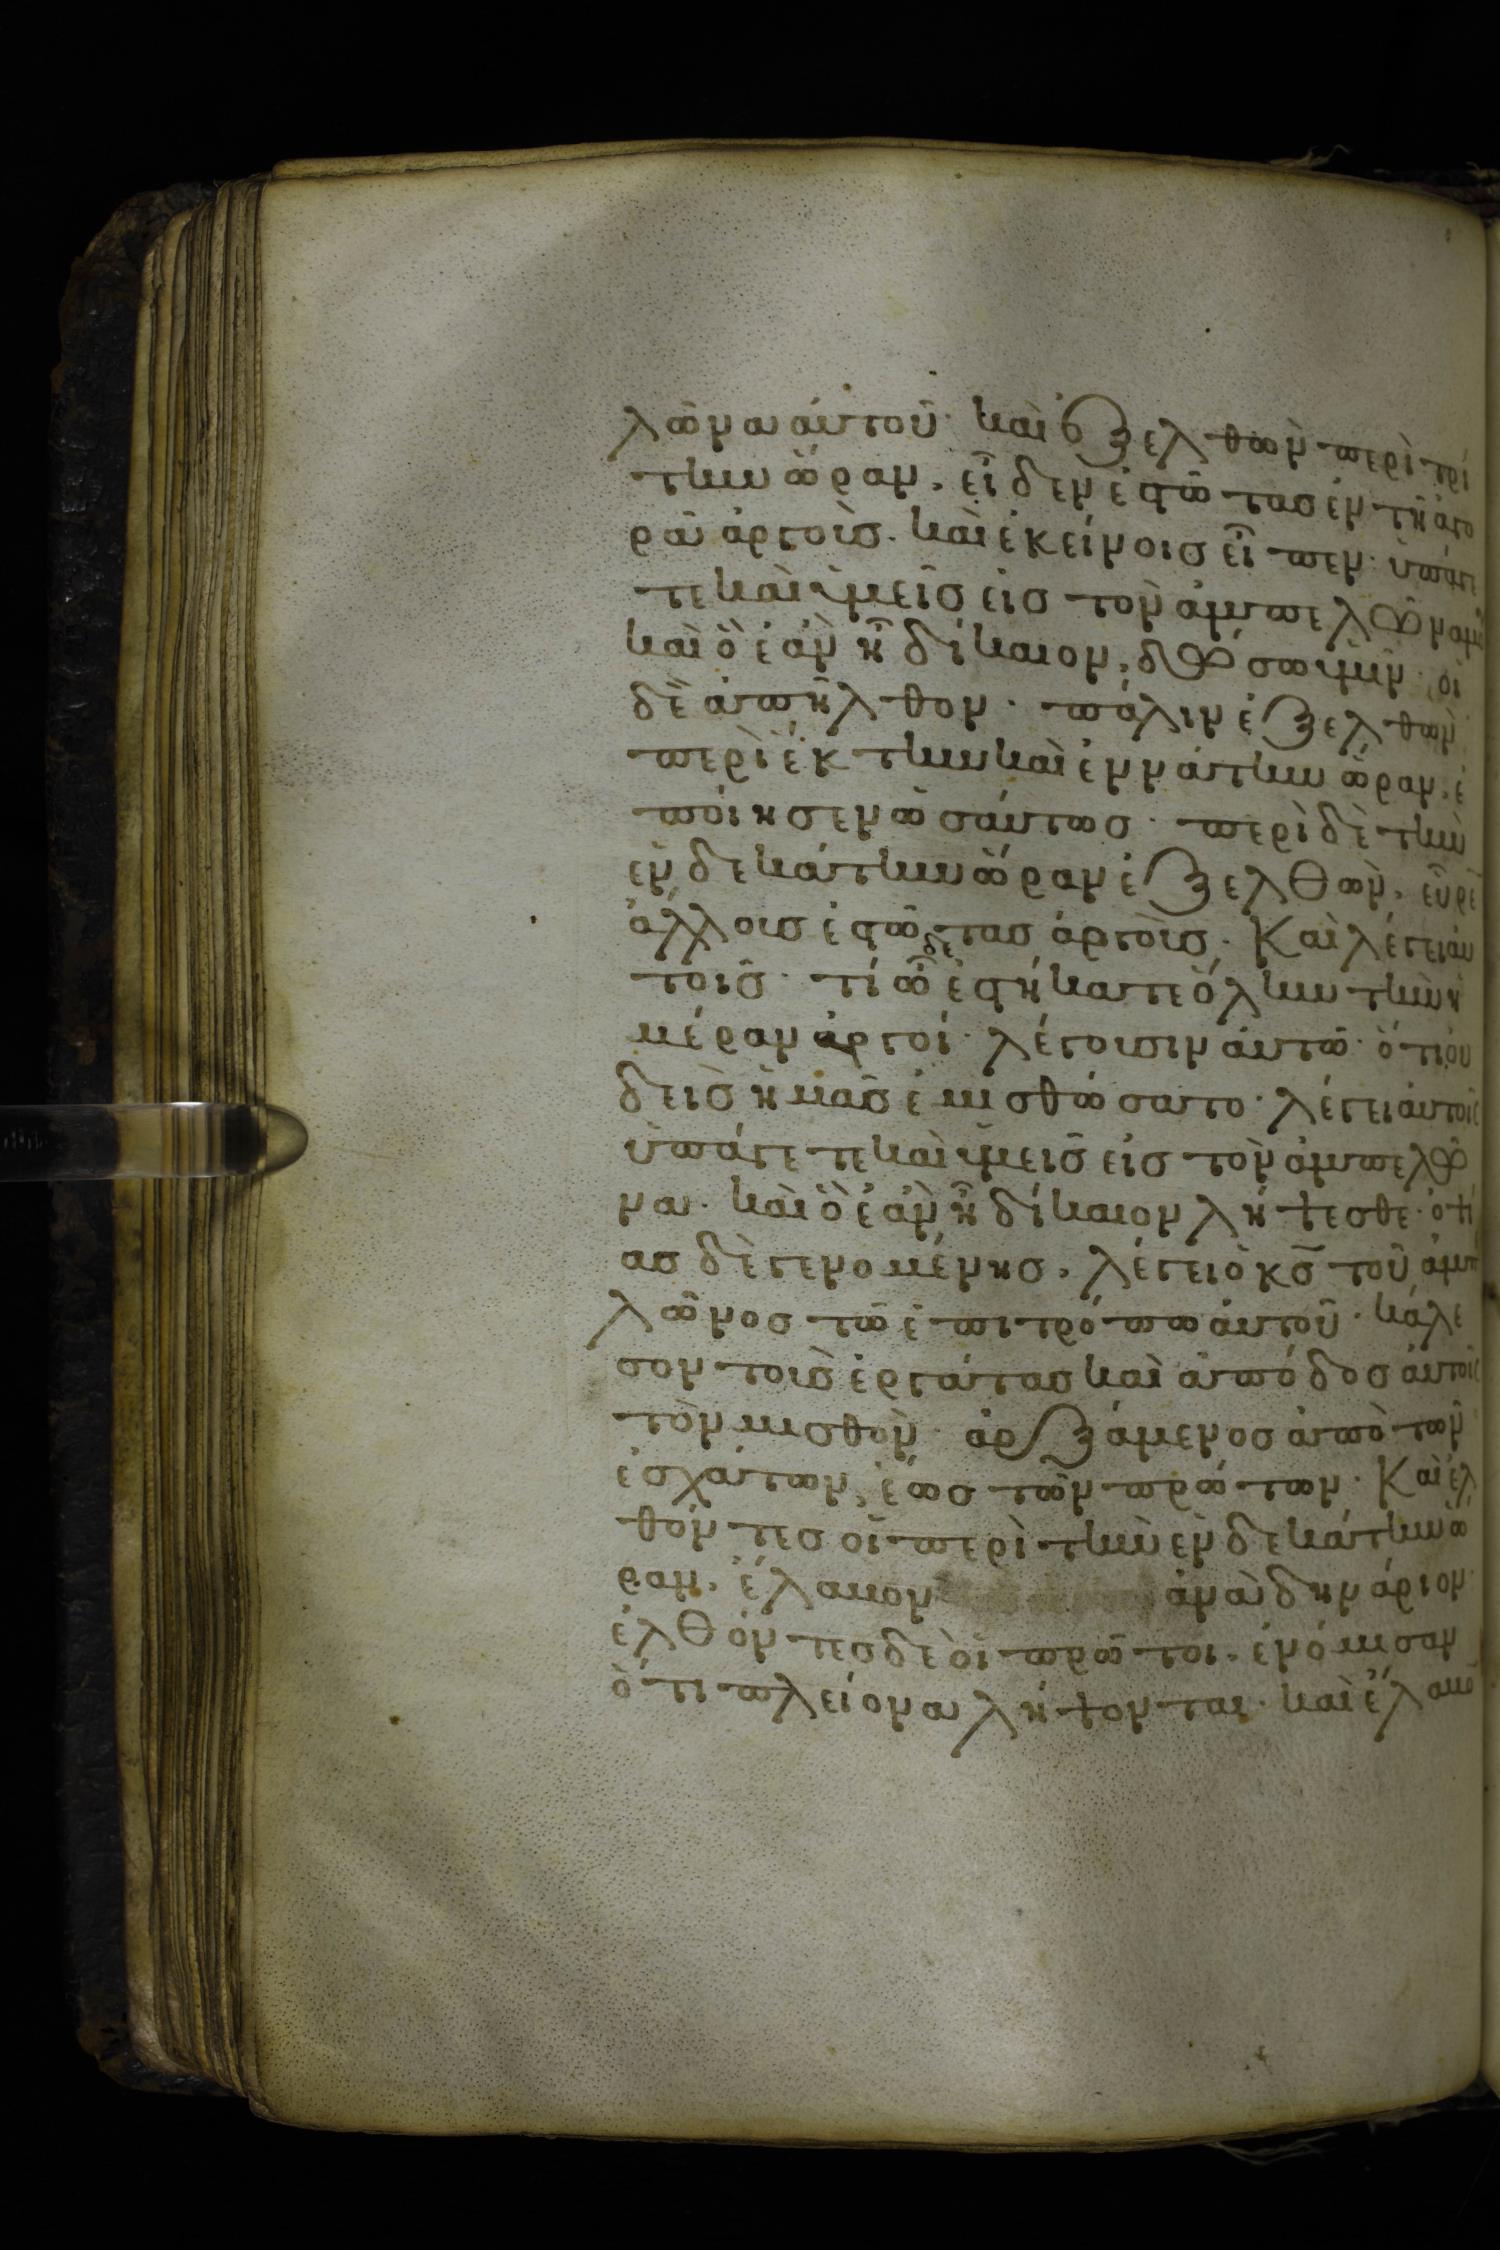 λῶνα αὐτοῦ· καὶ ἐξελθὼν περὶ τρί
την ὥραν, εἶδεν ἑστῶτας ἐν τῇ ἀγο
ρᾷ ἀργούς· καὶ ἐκείνοις εἶπεν· ὑπάγε
τε καὶ ὑμεῖς εἰς τὸν ἀμπελῶνα μου
καὶ ὃ ἐὰν ᾖ δίκαιον, δώσω ὑμῖν· οἱ
δὲ ἀπῆλθον· πάλιν ἐξελθὼν
περὶ ἕκτην καὶ ἐννάτην ὥραν, ἐ
ποίησεν ὡσαύτως· περὶ δὲ τὴν
ἑνδεκάτην ὥραν ἐξελθὼν, εὗρεν
ἄλλους ἑστῶτας ἀργούς· Καὶ λέγει αὐ
τοῖς· τί ὧδε ἑστήκατε ὅλην τὴν ἡ
μέραν ἀργοί· λέγουσιν αὐτῷ· ὅτι οὐ
δεὶς ἡμᾶς ἐμισθώσατο· λέγει αὐτοῖς
ὑπάγετε καὶ ὑμεῖς εἰς τὸν ἀμπελῶ
να· καὶ ὃ ἐὰν ᾖ δίκαιον λήψεσθε· ὀψί
ας δὲ γενομένης, λέγει ὁ κς̅ τοῦ ἀμπε
λῶνος τῷ ἐπιτρόπῳ αὐτοῦ· κάλε
σον τοὺς ἐργάτας καὶ ἀπόδος αὐτοῖς
τὸν μισθὸν· ἀρξάμενος ἀπὸ τῶν
ἐσχάτων, ἕως τῶν πρώτων· Καὶ ἐλ
θόντες οἱ περὶ τὴν ἑνδεκάτην ὥ
ραν, ἔλαβον ἀνὰ δηνάριον·
ἐλθόντες δὲ οἱ πρῶτοι, ἐνόμισαν
ὅτι πλείονα λήψονται· καὶ ἔλαβον